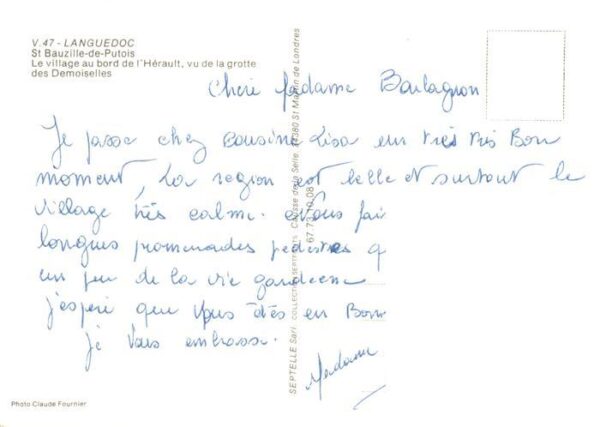 V.47 - LANGUEDOC
St Bauzille-de-Putois
Le village au bord de l'Hérault, vu de la grotte
des Demoiselles
Cheri Madame
Je passe chez Cousine Lisa un très très Bon
moment, La region est belle et surtout le
village très calme. Nous fai
longues promenades pedestres q
un peu de la vie
j'espère que vous êtes en Bonn
je vous embrasse.
Madame
SEPTELLE Sarl. COLLECTION SEPTENTS Causse de la Selle 34380 St Martin de Londres
67.73.10.08
Photo Claude Fournier